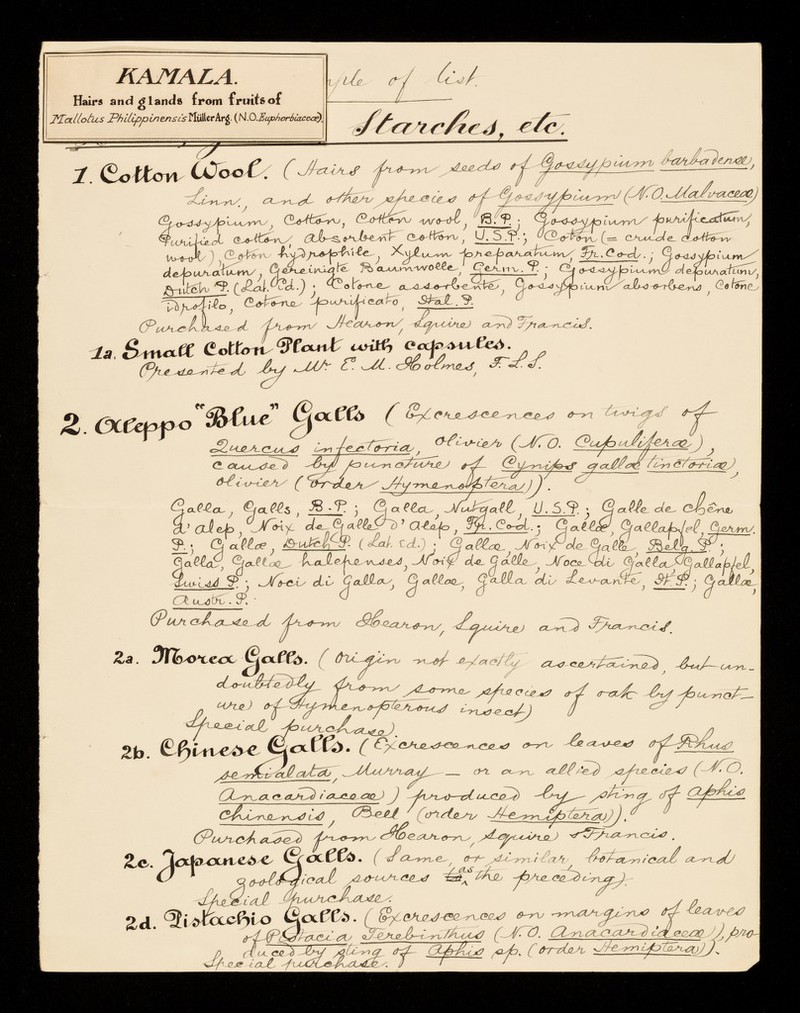 KAMALA.
Hairs and glands from fruits of
Mallotus Philippinensis Müller Arg. (N.O. Euphorbiaceæ).
of list.
Starches, etc.
1. Cotton Wool. (Hairs from seeds of Gossypium barbadense,
Linn., and other species of Gossypium (N.O. Malvaceæ)
Gossypium, Cotton, Cotton wool, B.P.; Gossypium purificatum,
Purified cotton, Absorbent cotton, U.S.P.; Coton (= crude cotton
wool), Coton hydrophile, Xylum preparatum, Fr. Cod.; Gossypium
depuratum, Gereinigte Baumwolle, Germ. P.; Gossypium depuratum,
Dutch P. (Lat. Ed.); Cotone assorbente, Gossypium absorbens, Cotone
idrofilo, Cotone purificato, Ital. P.
Purchased from Hearon, Squire and Francis.
1a. Small Cotton Plant with capsules.
Presented by Mr. E. M. Holmes, F.L.S.
2. Aleppo "Blue" Galls (Excrescences on twigs of
Quercus infectoria, Olivier (N.O. Cupuliferæ),
caused by puncture of Cynips gallæ tinctoriæ,
Olivier (order Hymenoptera)).
Galla, Galls, B.P.; Galla, Nutgall, U.S.P.; Galle de chêne
d'Alep, Noix de Galle d'Alep, Fr. Cod.; Gallæ, Galläpfel, Germ.
P.; Gallæ, Dutch P. (Lat. Ed.); Gallæ, Noix de Galle, Belg. P.;
Galla, Gallæ halepenses, Noix de Galle, Noce di Galla, Galläpfel,
Swiss P.; Noci di Galla, Gallæ, Galla di Levante, It. P.; Gallæ,
Austr. P.
Purchased from Hearon, Squire and Francis.
2a. Morea Galls. (Origin not exactly ascertained, but un-
doubtedly from some species of oak by punct-
ure of Hymenopterous insect)
Special purchase.
2b. Chinese Galls. (Excrescences on leaves of Rhus
semialata, Murray – or an allied species (N.O.
Anacardiaceæ) produced by sting of Aphis
chinensis, Bell (order Hemiptera)).
Purchased from Hearon, Squire & Francis.
2c. Japanese Galls. (Same, or similar, botanical and
zoological sources as the preceding).
Special purchase.
2d. Pistachio Galls. (Excrescences on margins of leaves
of Pistacia Terebinthus (N.O. Anacardiaceæ), pro-
duced by sting of Aphis sp. (order Hemiptera)).
Special purchase.